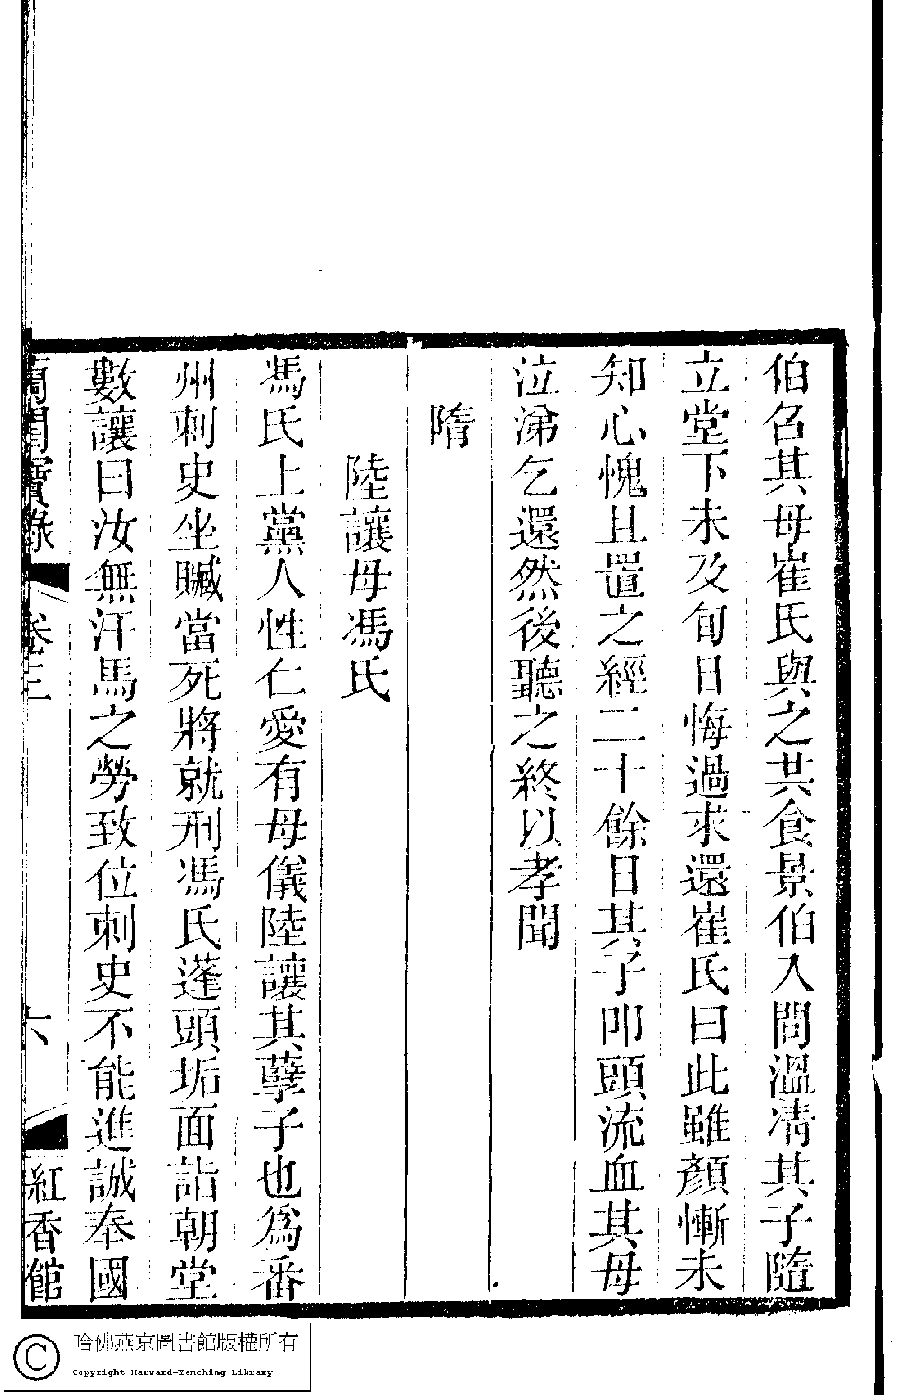 伯名其母崔氏與之共食景伯入問溫凊其子隨
立堂下未及旬日悔過求還崔氏曰此雖顏慚未
知心愧且置之經二十餘日其子叩頭流血其母
泣涕乞還然後聽之終以孝聞
隋
陸讓母馮氏
馮氏上黨人性仁愛有母儀陸讓其孽子也爲番
州刺史坐贓當死將就刑馮氏蓬頭垢面詣朝堂
數讓曰汝無汗馬之勞致位刺史不能進誠奉國
蘭閨寶錄 卷三 六 紅香館
哈佛燕京圖書館版權所有
Copyright Harvard-Yenching Library